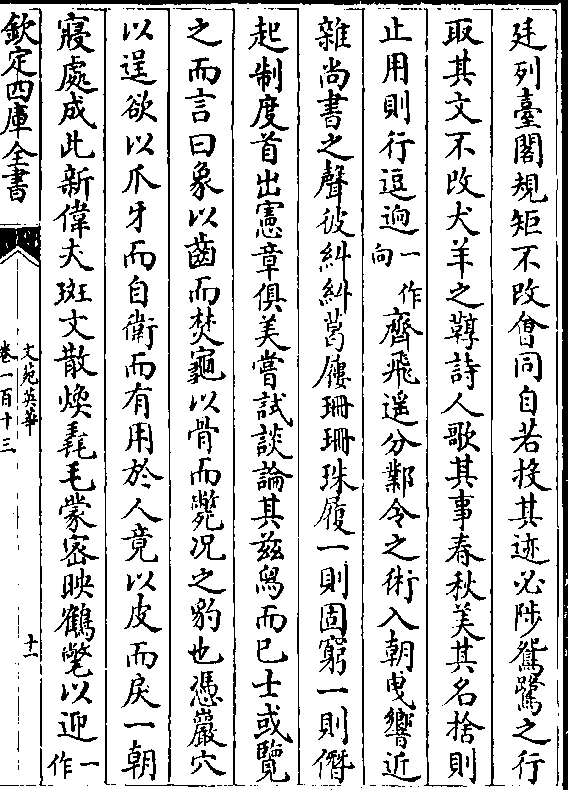 廷列臺閣規矩不改會同自若投其迹必陟鴛鷺之行
取其文不改犬羊之鞟詩人歌其事春秋美其名捨則
止用則行逗逈一作向齊飛遥分鄴令之術入朝曳響近
雜尚書之聲彼糾糾葛屨珊珊珠履一則固窮一則僭
起制度首出憲章俱美嘗試談論其兹舄而已士或覽
之而言曰象以齒而焚龜以骨而斃况之豹也憑巖穴
以逞欲以爪牙而自衛而有用於人竟以皮而戾一朝
寢處成此新偉夫斑文散煥毳毛蒙宻映鶴氅以迎一作
欽定四庫全書
文苑英華
卷一百十三
十一